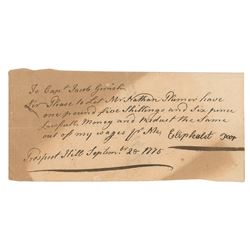 To Capt Jacob Gerrish
Sir Please to Let Mr Nathan Plumer have
one pound five Shillings and Six pence
Lawfull Money and deduct the Same
out of my wages pr Me, Eliphalet
Prospect Hill Septembr 28 1775